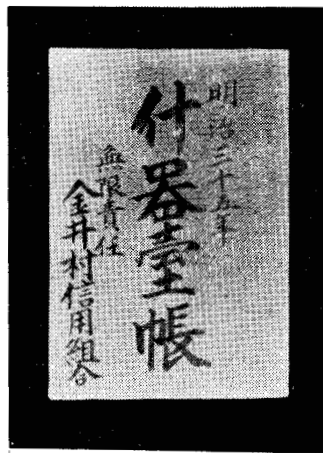 明治三十五年
什器臺帳
無限責任
金井村信用組合